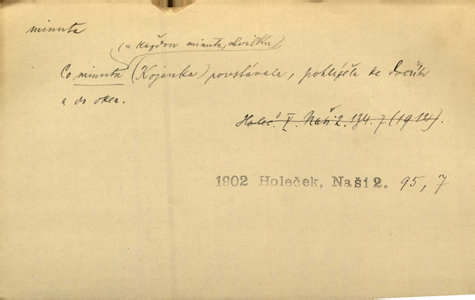 minuta
(= každou minutu, chvilku)
Co minuta (Kojanka) povstávala, pohlížela ke dveřím
a do oken.
Holeč. V. Naši 2. 134. 7 (1912).
1902 Holeček, Naši 2. 95, 7